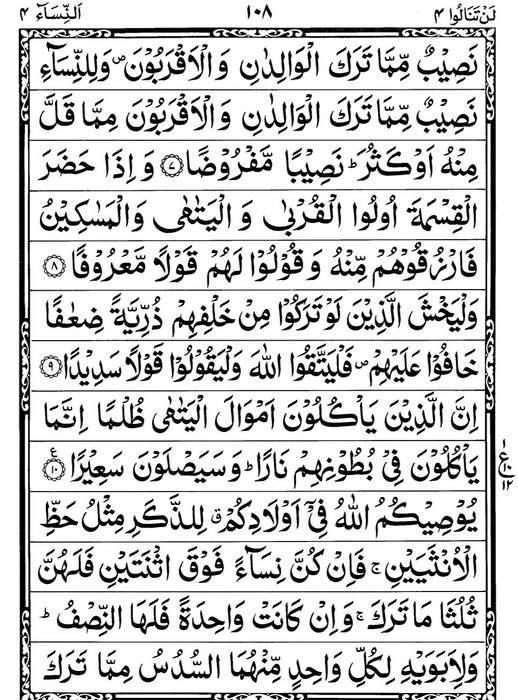 لَنْ تَنَالُوا ٤ ١٠٨ اَلنِّسَآء ٤
نَصِيْبٌ مِّمَّا تَرَكَ الْوَالِدٰنِ وَالْاَقْرَبُوْنَ ۪ وَلِلنِّسَآءِ
نَصِيْبٌ مِّمَّا تَرَكَ الْوَالِدٰنِ وَالْاَقْرَبُوْنَ مِمَّا قَلَّ
مِنْهُ اَوْكَثُرَ ؕ نَصِيْبًا مَّفْرُوْضًا ﴿٧﴾ وَاِذَا حَضَرَ
الْقِسْمَةَ اُولُوا الْقُرْبٰى وَالْيَتٰمٰى وَالْمَسٰكِيْنُ
فَارْزُقُوْهُمْ مِّنْهُ وَقُوْلُوْا لَهُمْ قَوْلًا مَّعْرُوْفًا ﴿٨﴾
وَلْيَخْشَ الَّذِيْنَ لَوْ تَرَكُوْا مِنْ خَلْفِهِمْ ذُرِّيَّةً ضِعٰفًا
خَافُوْا عَلَيْهِمْ ۪ فَلْيَتَّقُوا اللّٰهَ وَلْيَقُوْلُوْا قَوْلًا سَدِيْدًا ﴿٩﴾
اِنَّ الَّذِيْنَ يَاْكُلُوْنَ اَمْوَالَ الْيَتٰمٰى ظُلْمًا اِنَّمَا
يَاْكُلُوْنَ فِيْ بُطُوْنِهِمْ نَارًا ؕ وَسَيَصْلَوْنَ سَعِيْرًا ﴿١٠﴾ ع
١ ع ١٠ ١٢
يُوْصِيْكُمُ اللّٰهُ فِيْٓ اَوْلَادِكُمْ ۗ لِلذَّكَرِ مِثْلُ حَظِّ
الْاُنْثَيَيْنِ ۚ فَاِنْ كُنَّ نِسَآءً فَوْقَ اثْنَتَيْنِ فَلَهُنَّ
ثُلُثَا مَا تَرَكَ ۚ وَاِنْ كَانَتْ وَاحِدَةً فَلَهَا النِّصْفُ ؕ
وَلِاَبَوَيْهِ لِكُلِّ وَاحِدٍ مِّنْهُمَا السُّدُسُ مِمَّا تَرَكَ